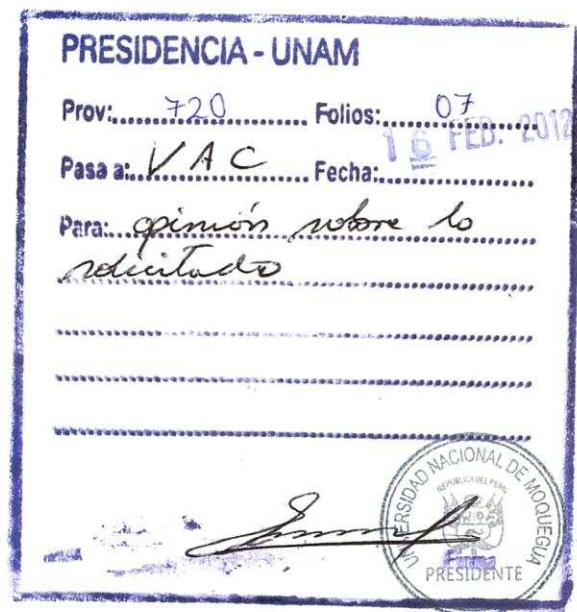 PRESIDENCIA - UNAM
Prov: 720 Folios: 07
16 FEB. 2012
Pasa a: VAC Fecha:
Para: opinión sobre lo
solicitado
UNIVERSIDAD NACIONAL DE MOQUEGUA
REPUBLICA DEL PERU
Firma
PRESIDENTE